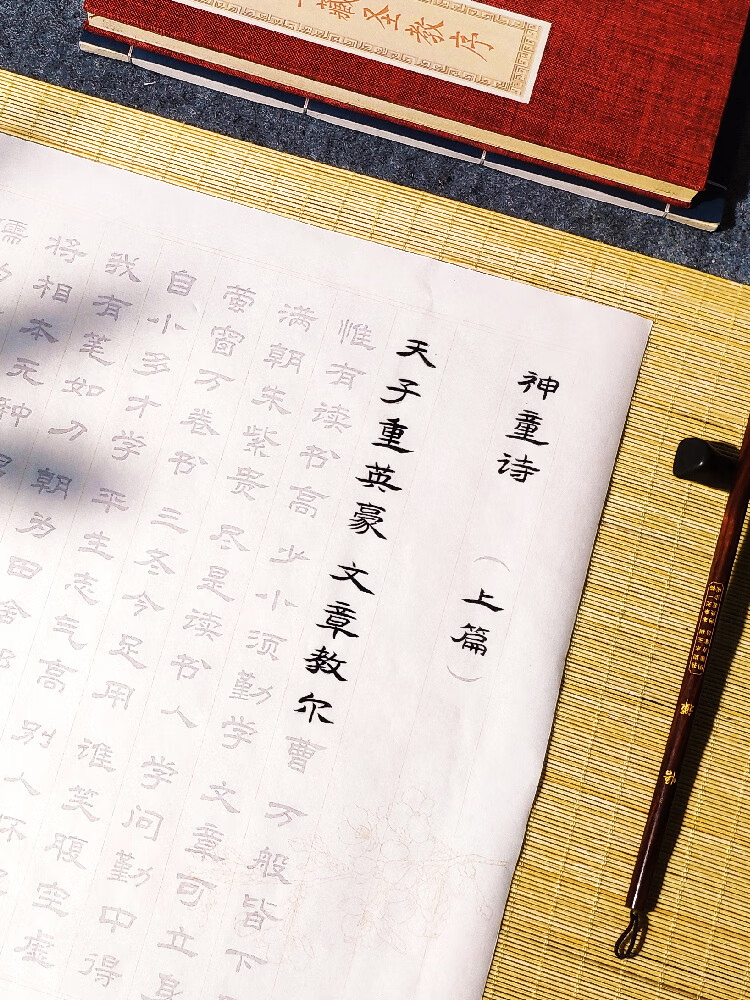 藏圣教序
神童诗 （上篇）
天子重英豪 文章教尔曹 万般皆下
惟有读书高 少小须勤学 文章可立身
满朝朱紫贵 尽是读书人 学问勤中得
萤窗万卷书 三冬今足用 谁笑腹空虚
自小多才学 平生志气高 别人怀
我有笔如刀 朝为田舍
将相本无种